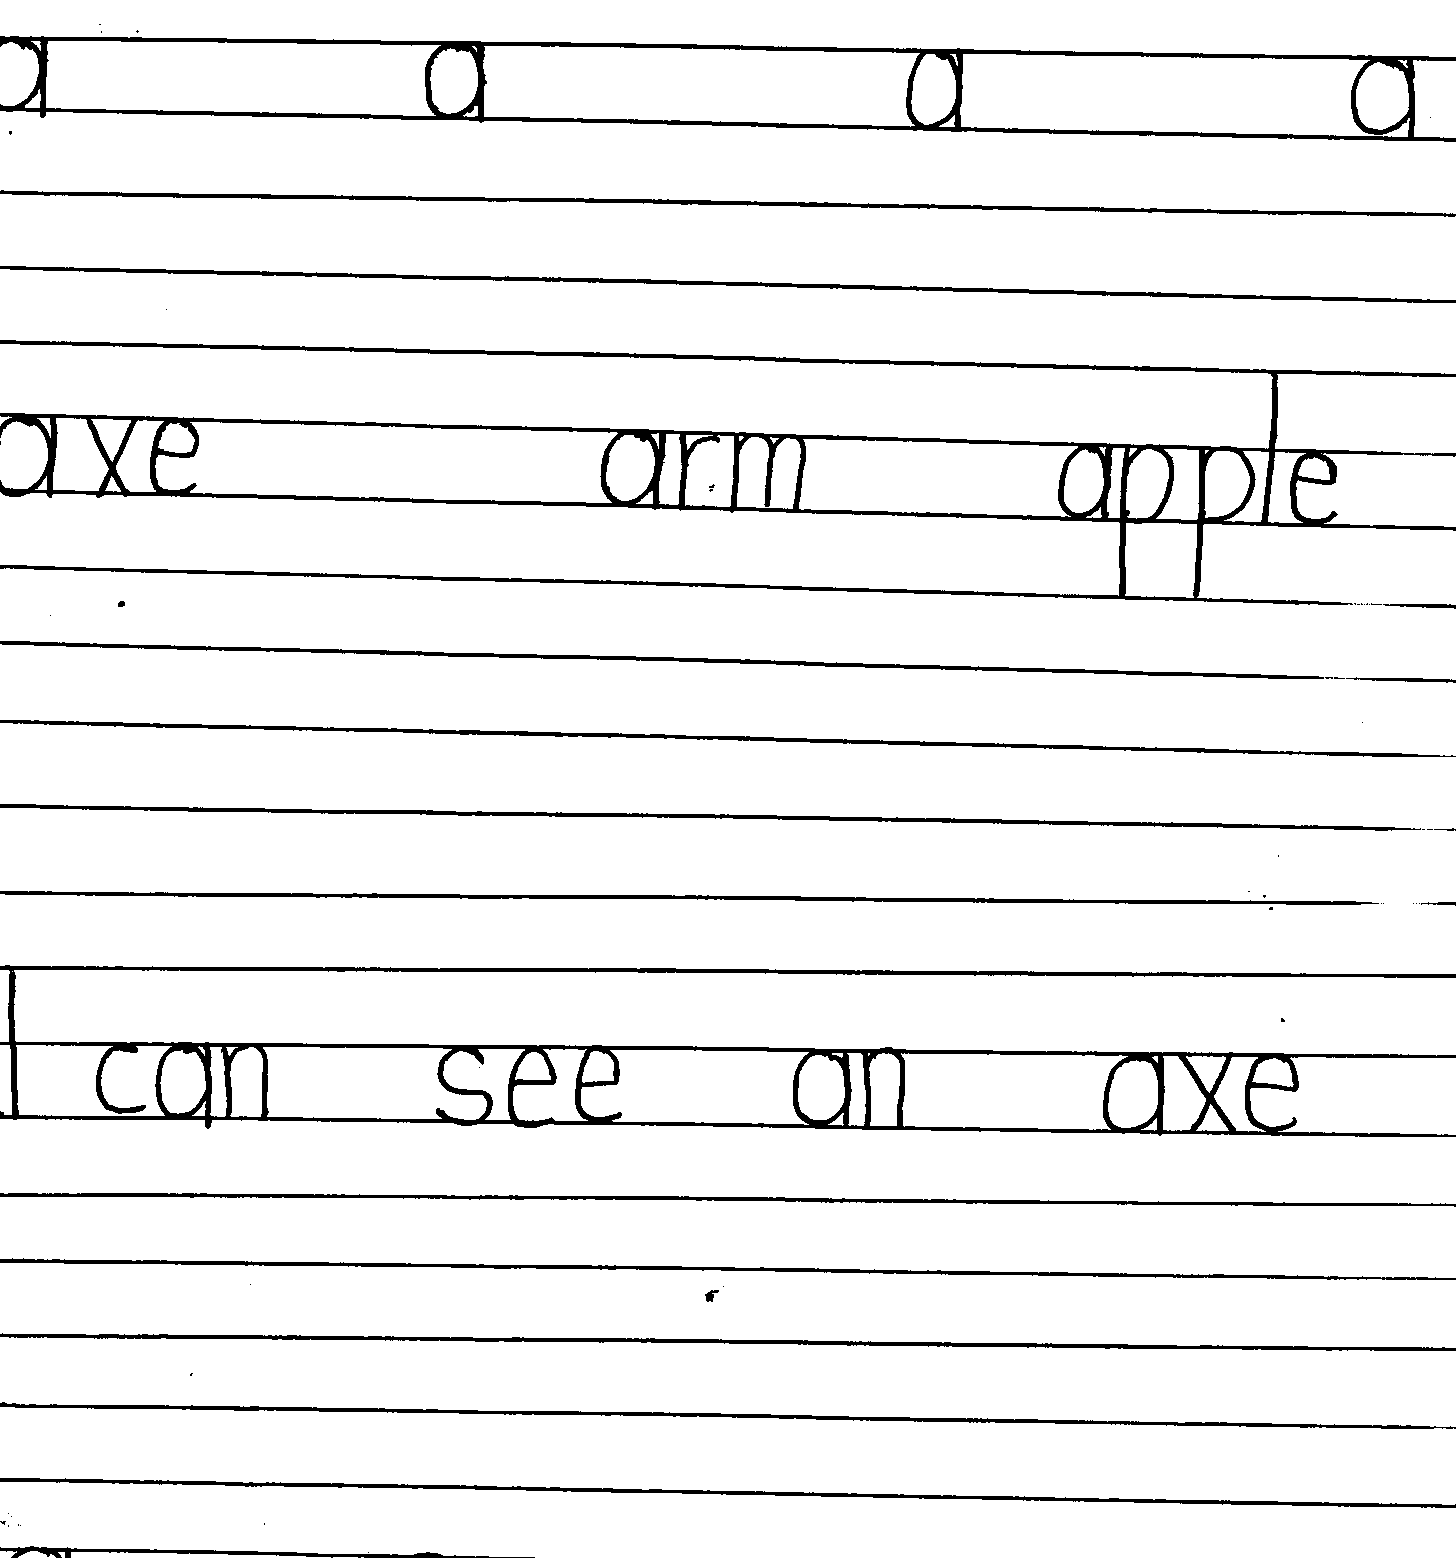 a a a a
axe arm apple
I can see an axe